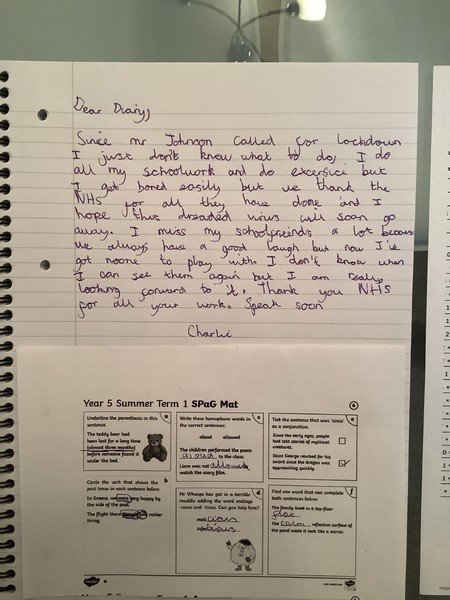 Dear Diary,
Since mr Johnson called for lockdown
I just don't know what to do, I do
all my schoolwork and do excersice but
I get bored easily but we thank the
NHS for all they have done and I
hope this dreaded virus will soon go
away. I miss my schoolfriends a lot because
we always have a good laugh but now I've
got noone to play with. I don't know when
I can see them again but I am really
looking forward to it. Thank you NHS
for all your work. Speak soon
Charlie
Year 5 Summer Term 1 SPaG Mat
a
Underline the parenthesis in this
sentence.
The teddy bear had
been lost for a long time
(almost three months)
before someone found it
under the bed.
b
Circle the verb that shows the
past tense in each sentence below.
In Greece, very happy by
the side of the pool.
The flight there rather
tiring.
c
Write these homophone words in
the correct sentences:
aloud allowed
The children performed the poem
aloud to the class.
Liam was not allowed to
watch the scary film.
d
Mr Whoops has got in a terrible
muddle adding the word endings
-cious and -tious. Can you help him?
e
Tick the sentence that uses 'since'
as a conjunction.
Since the early ages, people
had told stories of mythical
creatures.
Saint George reached for his
sword since the dragon was
approaching quickly.
f
Find one word that can complete
both sentences below.
The family lived in a top floor
flat
The calm, reflective surface of
the pond made it look like a mirror.